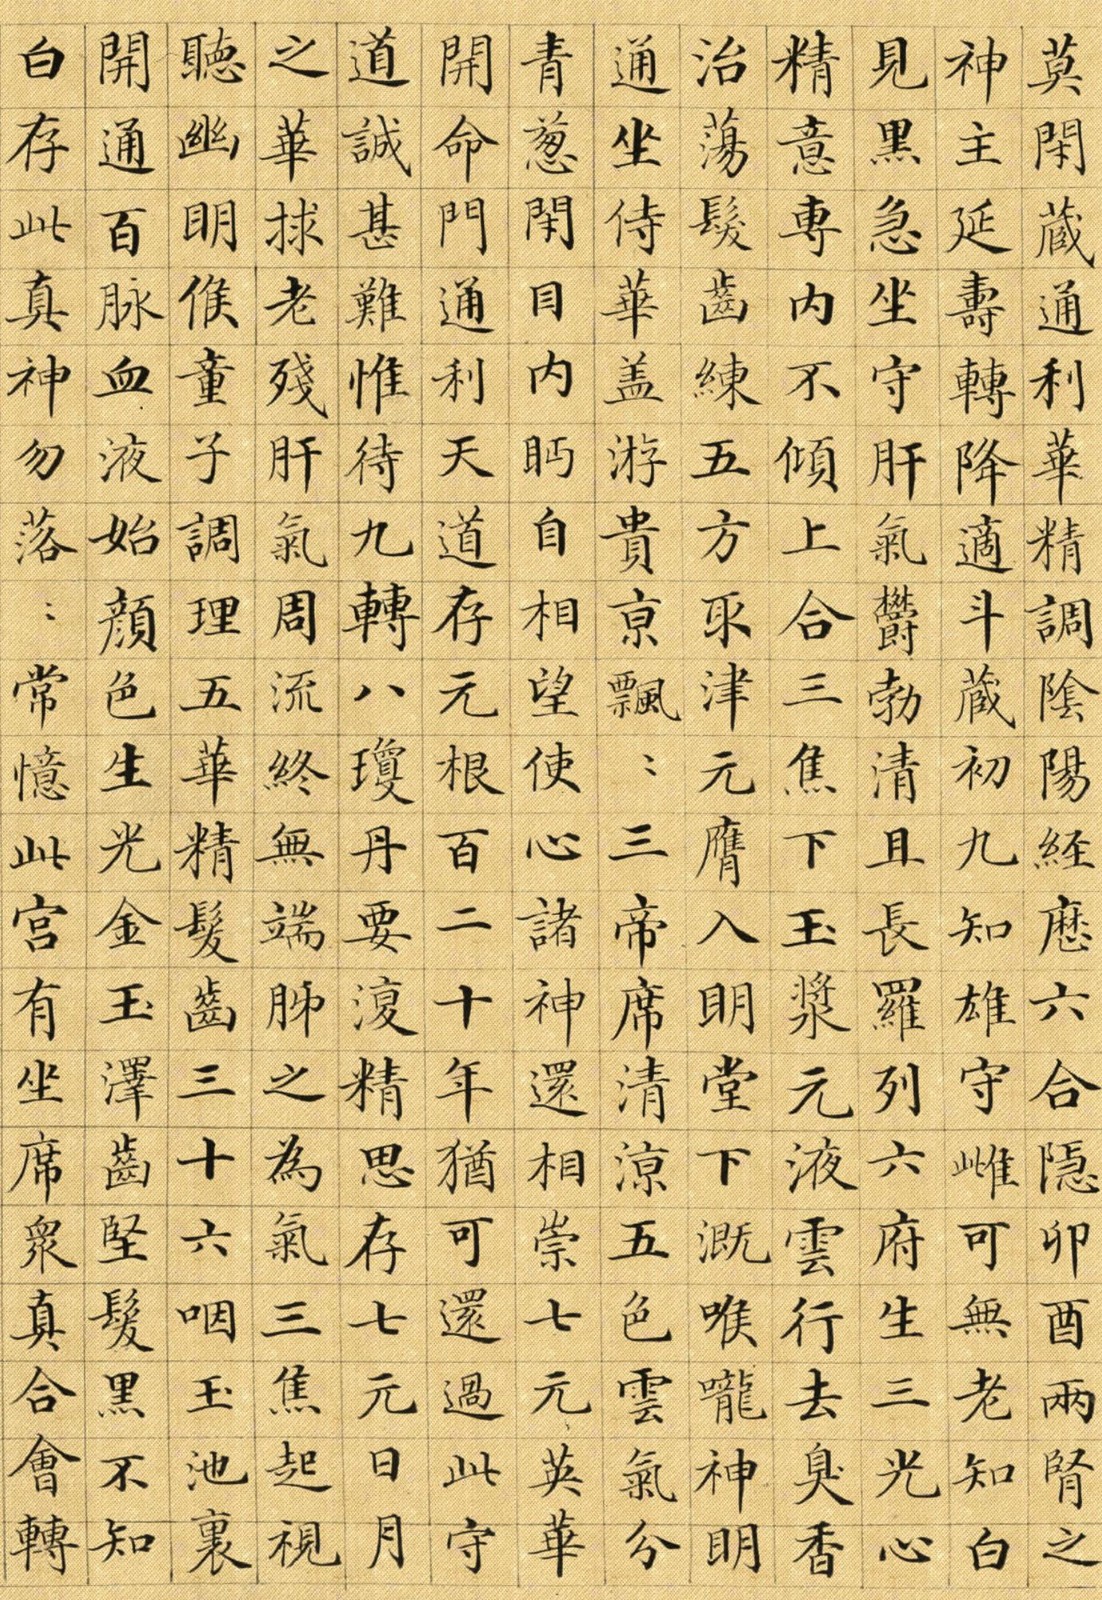 莫閇藏通利華精調陰陽経歷六合隱卯酉兩腎之
神主延壽轉降適斗藏初九知雄守雌可無老知白
見黒急坐守肝氣欝勃清且長羅列六府生三光心
精意專内不傾上合三焦下玉漿元液雲行去臭香
治蕩髮齒練五方取津元膺入眀堂下溉喉嚨神眀
通坐侍華盖游貴亰飄〻三帝席清涼五色雲氣分
青蔥閇目内眄自相望使心諸神還相崇七元英華
開命門通利天道存元根百二十年猶可還過此守
道誠甚難惟待九轉八瓊丹要復精思存七元日月
之華捄老殘肝氣周流終無端肺之為氣三焦起視
聽幽眀候童子調理五華精髮齒三十六咽玉池裏
開通百脉血液始顔色生光金玉澤齒堅髮黒不知
白存此真神勿落〻常憶此宫有坐席衆真合會轉